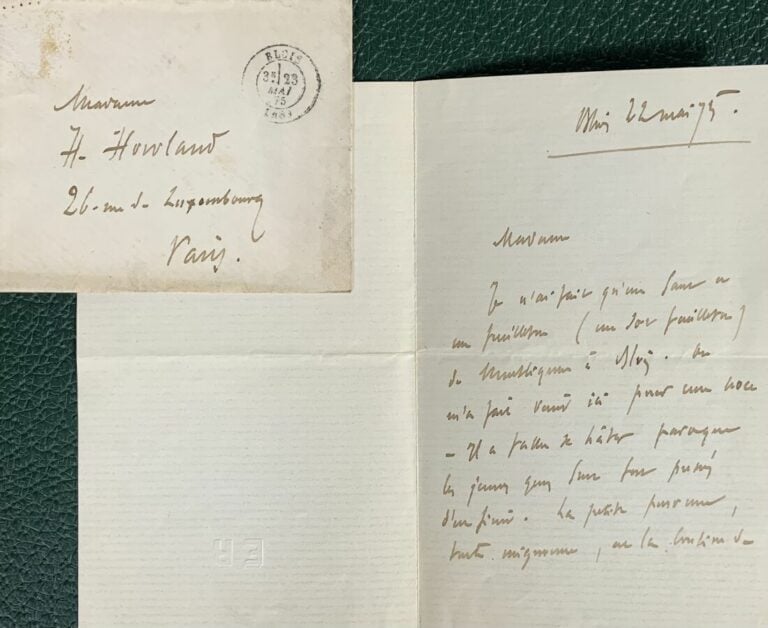 BLOIS
23
MAI
75
Madame
H. Howland
26. rue de Luxembourg
Paris.
Blois 22 mai 75.
Madame
Je n'ai fait qu'un saut
un feuilleton (un feuilleton)
de à Blois. On
m'a fait venir ici pour une noce
- Il a fallu se hâter parceque
les jeunes gens sont fort pressés
d'en finir. La petite personne,
toute mignonne, est la cousine de
E R